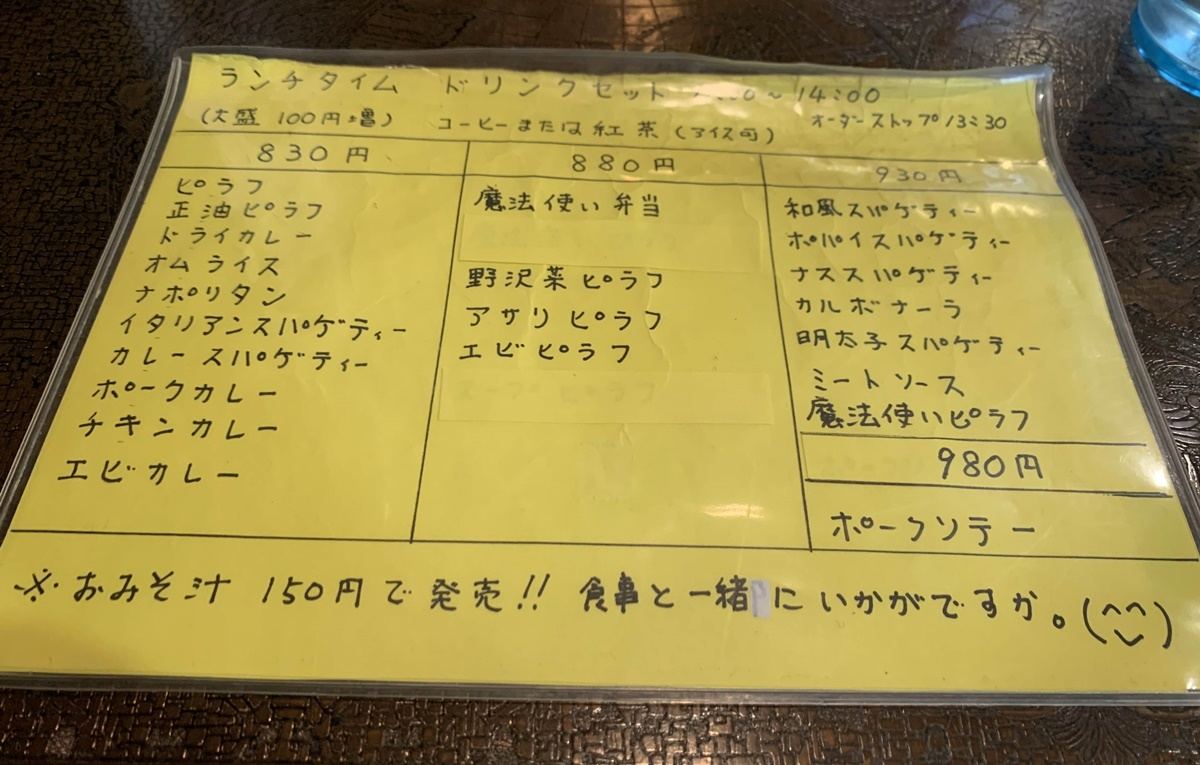 ランチタイム ドリンクセット ~14:00
(大盛 100円増) コーヒーまたは紅茶(アイス可) オーダーストップ13:30
830円
ピラフ
正油ピラフ
ドライカレー
オムライス
ナポリタン
イタリアンスパゲティー
カレースパゲティー
ポークカレー
チキンカレー
エビカレー
880円
魔法使い弁当
野沢菜ピラフ
アサリピラフ
エビピラフ
930円
和風スパゲティー
ポパイスパゲティー
ナススパゲティー
カルボナーラ
明太子スパゲティー
ミートソース
魔法使いピラフ
980円
ポークソテー
※おみそ汁 150円で発売!! 食事と一緒にいかがですか。(^^)